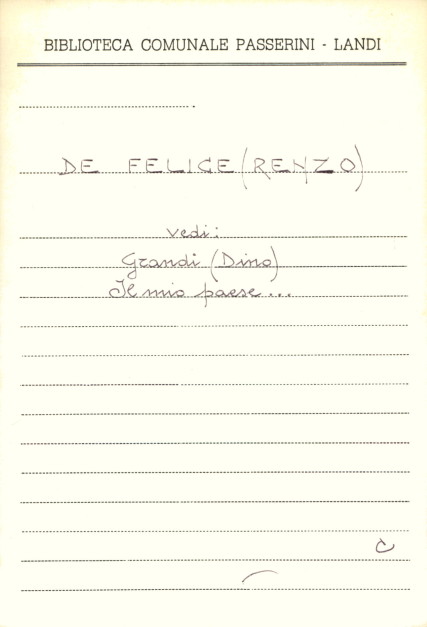 BIBLIOTECA COMUNALE PASSERINI - LANDI
DE FELICE (RENZO)
vedi:
Grandi (Dino)
Il mio paese...
C